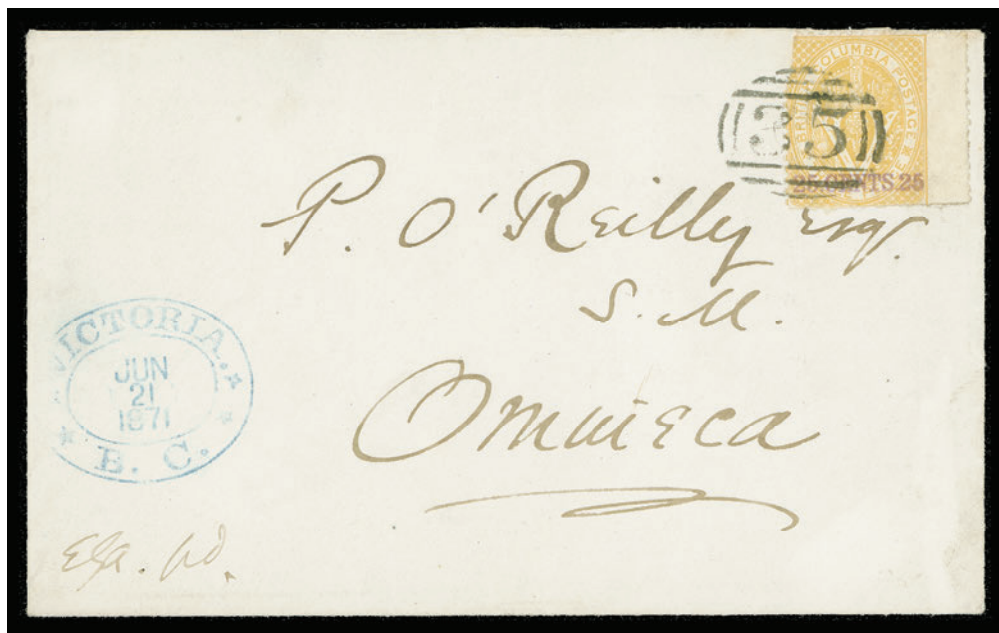 BRITISH COLUMBIA POSTAGE
35
25 CENTS 25
P. O'Reilly Esqr.
S. M.
Omineca
VICTORIA.
JUN
21
1871
B. C.
pd.